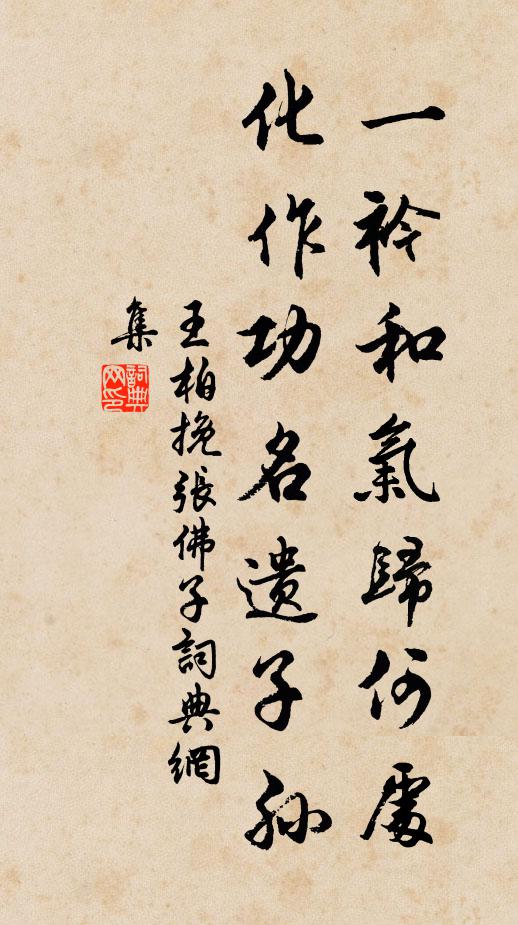 一衿和氣歸何處
化作功名遺子孫
王柏挽張佛子詞典網
集
詞典
网印